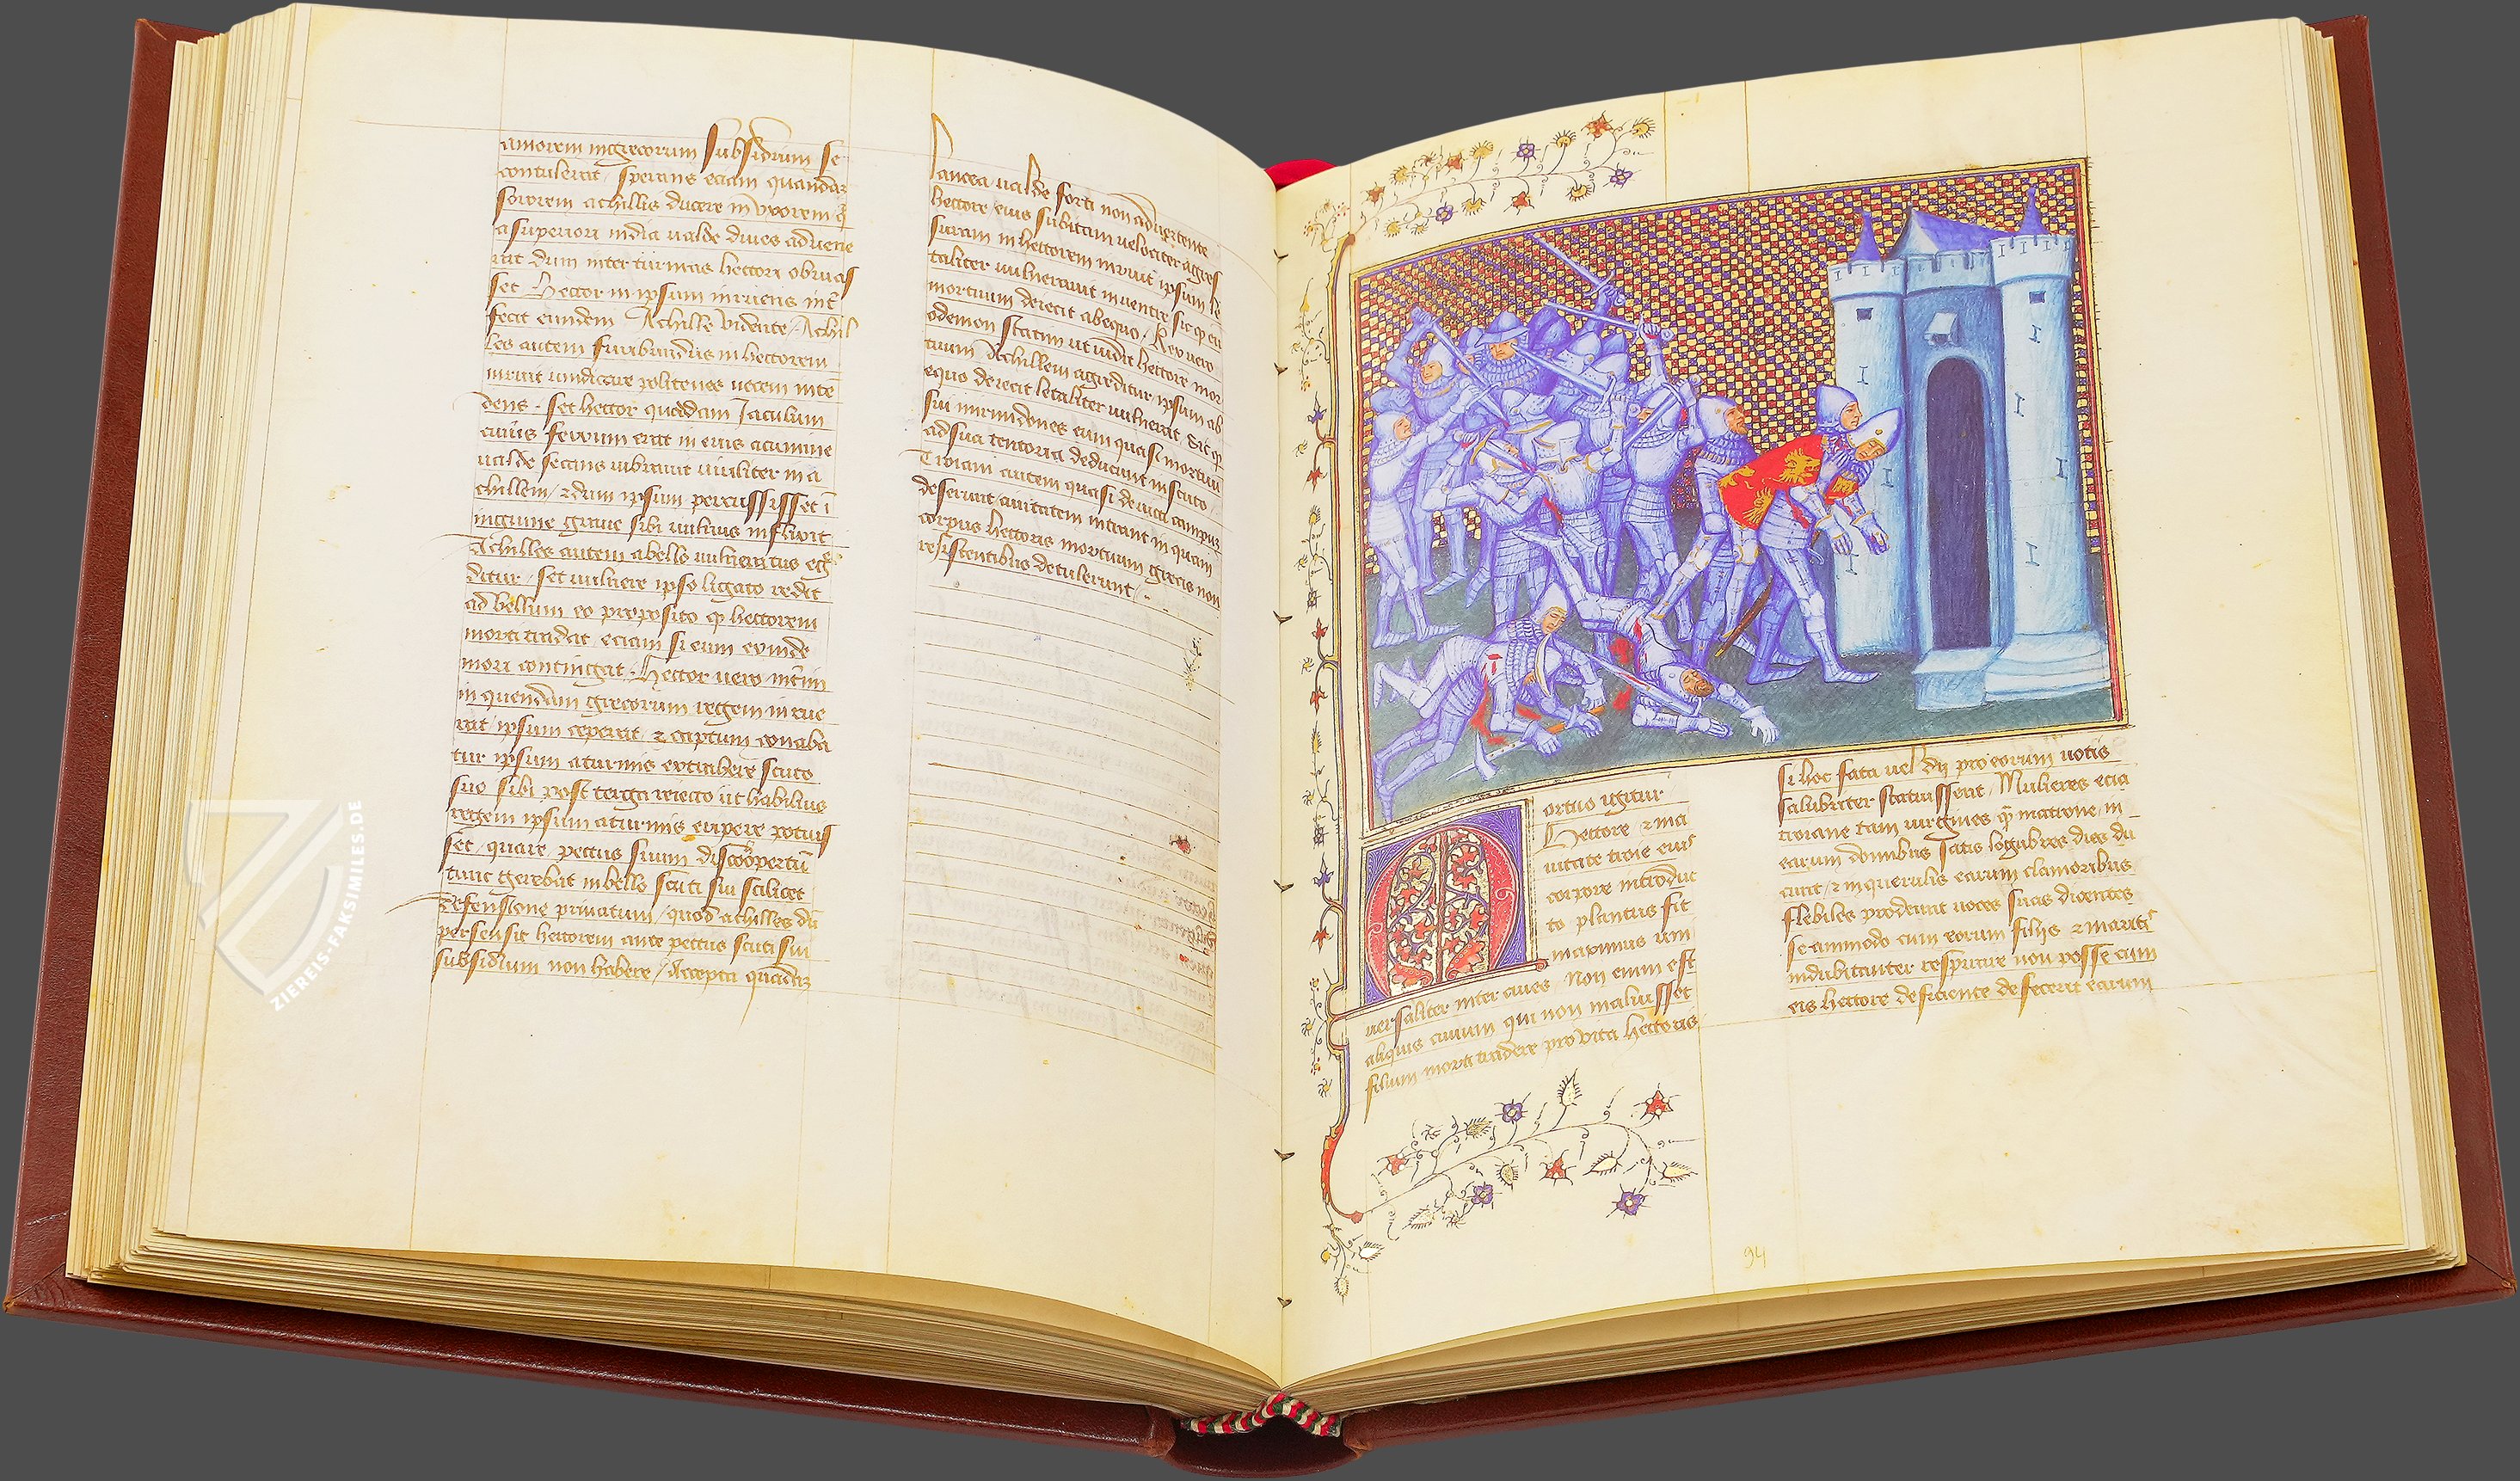 amorem in grecorum subsidium se
contulerat / sperans eciam quandam
sororem achillis ducere in vxorem q̄
a superiori india ualde diues aduene
rat dum inter turmas hectori obuias
set Hector in ipsum irruens int̄
fecit eundem Achille vidente / Achil
les autem furibundus in hectorem
irruit uindicare politenes necem inten
dens · set hector quoddam Jaculum
cuius ferrum erat in eius acumine
ualde secans vibrauit uiriliter in a
chillem / ⁊ dum ipsum percussisset ī
inguine graue sibi uulnus inflixit
Achilles autem a bello uulneratus eg̃
ditur / set uulnere ipso ligato redit
ad bellum eo proposito ꝙ hectorem
morti tradat eciam si eum exinde
mori contingat · Hector uero int̄im
in quendam grecorum regem irrue
rat / ipsum ceperat ⁊ captum conaba
tur ipsum a turmis extrahere scuto
suo sibi post terga reiecto ut habilius
regem ipsum a turmis eripere potuis
set / quare pectus suum discoopertū
tunc gerebat in bello scuti sui scilicet
defensione priuatum / quod achilles dū
persensit hectorem ante pectus scuti sui
subsidium non habere / Accepta quadam
lancea ualde forti non aduertente
hectore / eius subitam uelociter agres
suram in hectorem irruit ipsum le
taliter uulnerauit in uentre sic ꝙ eū
mortuum deiecit ab equo / Rex uero
odemon statim ut uidit hectore mor
tuum Achillem agreditur / ipsum ab
equo deiecit letaliter uulnerat Sic ꝙ
sui mirundones eum quasi mortuū
ad sua tentoria deducunt in scuto /
Troiani autem quasi deuicti campum
deserunt ciuitatem intrant in quam
corpus hectoris mortuum grecis non
resistentibus detulerunt / · ·
M
ortuo igitur
Hectore ⁊ in ci
uitate troie eius
corpore introduc
to planctus fit
maximus uni
uersaliter inter ciues / Non enim est
aliquis ciuium qui non maluisset
filium morti tradere pro vita hectoris
si hoc fata uel dij pro eorum uotis
salubriter statuissent / Mulieres ecia
troiane tam uirgines ꝙ matrone in
earum domibus satis logubres dies du
cunt / ⁊ in querulis earum clamoribus
flebiles prodeunt uoces suas dicentes
se ammodo cum eorum filijs ⁊ maritis
indubitanter respirare non posse cum
eis hectore deficiente defecerit earum
94
ZIEREIS-FAKSIMILES.DE